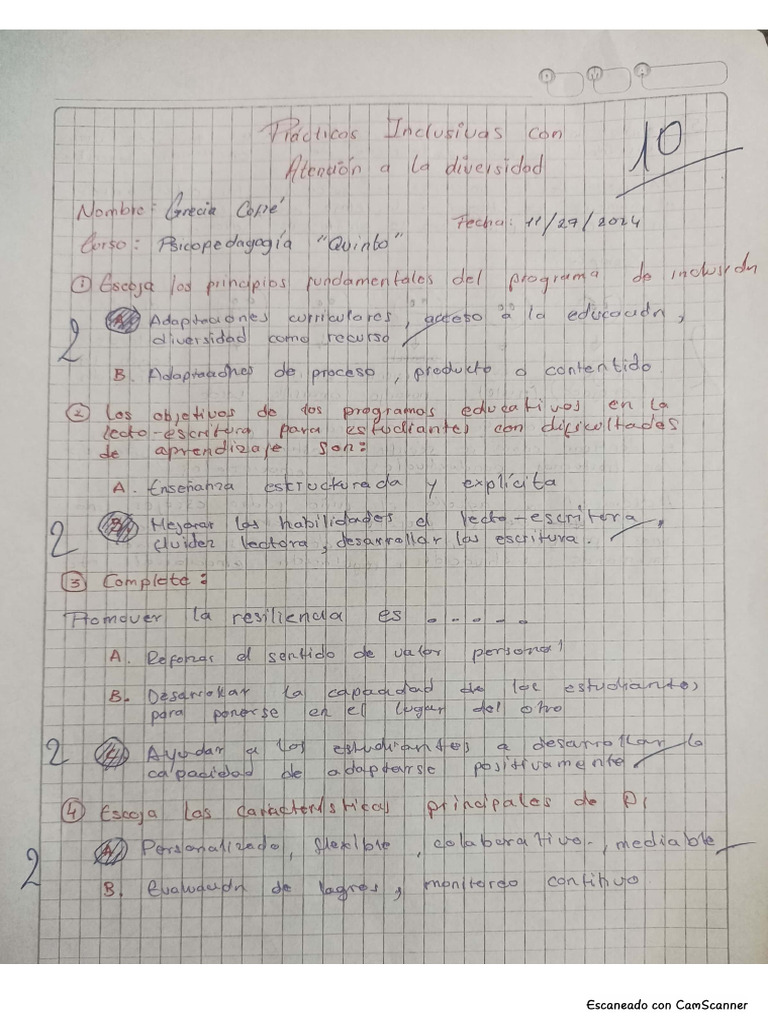 Prácticas Inclusivas con
Atención a la diversidad
10
Nombre: Grecia
Fecha: 11/27/2024
Curso: Psicopedagogía "Quinto"
① Escoja los principios fundamentales del programa de inclusión
2
A. Adaptaciones curriculares, acceso a la educación,
diversidad como recurso
B. Adaptaciones de proceso, producto o contentido
② Los objetivos de los programas educativos en la
lecto-escritura para estudiantes con dificultades
de aprendizaje son:
A. Enseñanza estructurada y explícita
2
B. Mejorar las habilidades el lecto-escritora,
fluidez lectora, desarrollar las escritura.
③ Complete:
Promover la resiliencia es . . . . .
A. Reforzar el sentido de valor personal
B. Desarrollar la capacidad de los estudiantes
para ponerse en el lugar del otro
2
C. Ayudar a los estudiantes a desarrollar la
capacidad de adaptarse positivamente
④ Escoja las características principales de
2
A. Personalizado, flexible, colaborativo, mediable
B. Evaluación de logros, monitoreo continuo
Escaneado con CamScanner